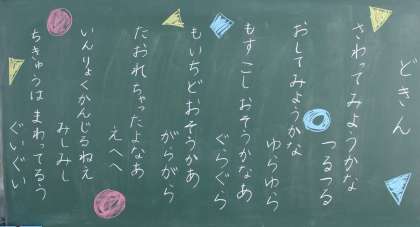 どきん
さわってみようかな
つるつる
おしてみようかな
ゆらゆら
もすこしおそうかなあ
ぐらぐら
もいちどおそうかあ
がらがら
たおれちゃったよなあ
えへへ
いんりょくかんじるねえ
みしみし
ちきゅうはまわってるう
ぐいぐい